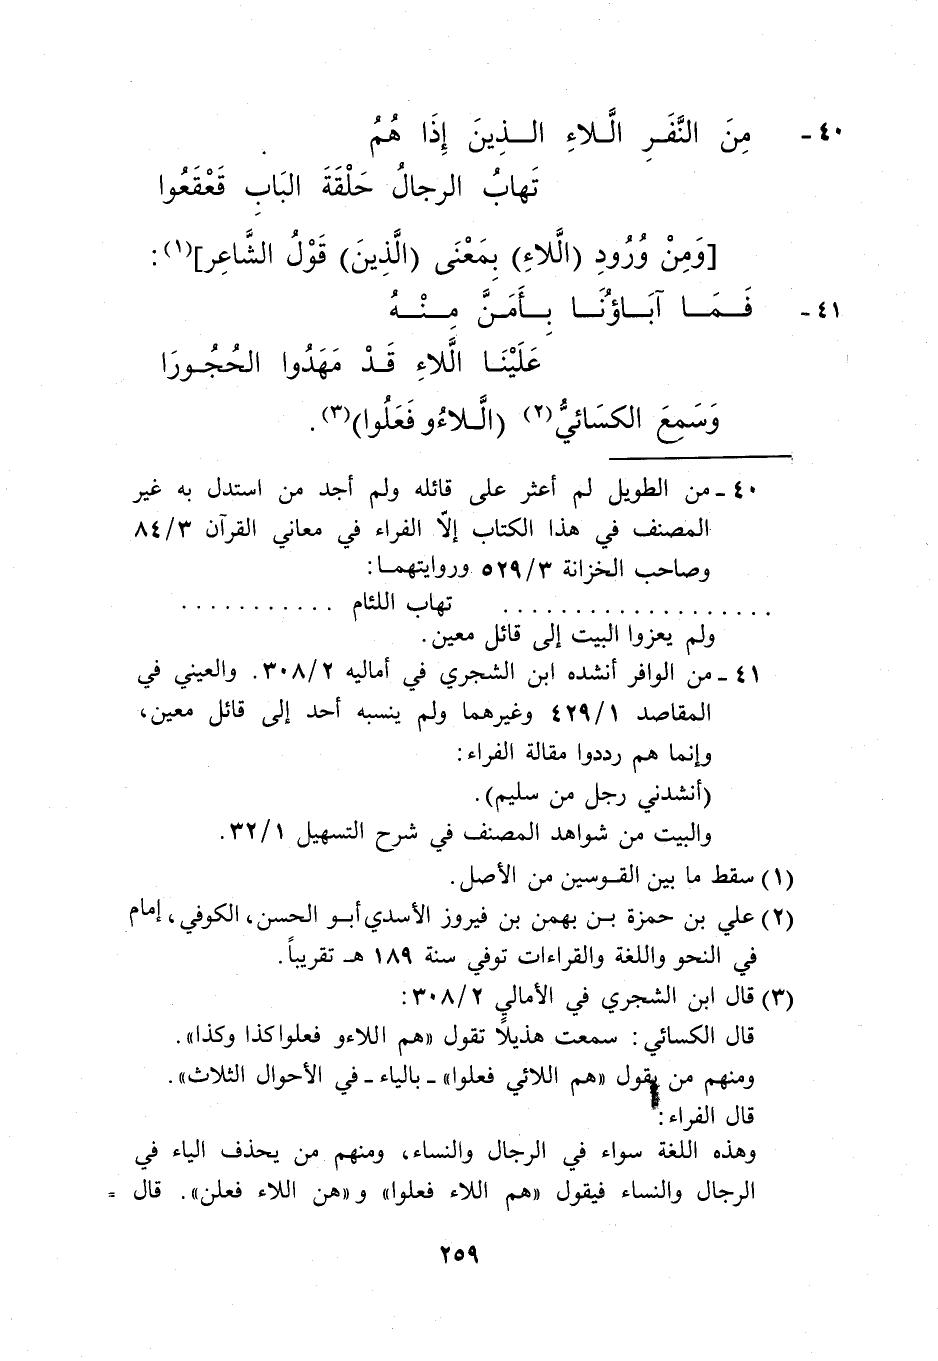 ٤٠- مِنَ النَّفَرِ الَّلاءِ الــذِينَ إِذَا هُمُ
تَهابُ الرجالُ حَلْقَةَ البَابِ قَعْقَعُوا
[وَمِنْ وُرُودِ (الَّلاءِ) بِمَعْنَى (الَّذِينَ) قَوْلُ الشَّاعِر](١):
٤١- فَـمَـا آبَـاؤُنَـا بِـأَمَـنَّ مِـنْـهُ
عَلَيْنَـا الَّلاءِ قَـدْ مَهَدُوا الحُجُـورَا
وَسَمِعَ الكسَائيُّ(٢) (الَّـلاءُو فَعَلُوا)(٣).
٤٠ - من الطويل لم أعثر على قائله ولم أجد من استدل به غير
المصنف في هذا الكتاب إلاّ الفراء في معاني القرآن ٨٤/٣
وصاحب الخزانة ٥٢٩/٣ وروايتهمـا:
................... تهاب اللثام ...........
ولم يعزوا البيت إلى قائل معين.
٤١ - من الوافر أنشده ابن الشجري في أماليه ٣٠٨/٢. والعيني في
المقاصد ٤٢٩/١ وغيرهما ولم ينسبه أحد إلى قائل معين،
وإنما هم رددوا مقالة الفراء:
(أنشدني رجل من سليم).
والبيت من شواهد المصنف في شرح التسهيل ٣٢/١.
(١) سقط ما بين القـوسين من الأصل.
(٢) علي بن حمزة بـن بهمن بن فيروز الأسدي أبـو الحسن، الكوفي، إمام
في النحو واللغة والقراءات توفي سنة ١٨٩ هـ تقريباً.
(٣) قال ابن الشجري في الأمالي ٣٠٨/٢:
قال الكسائي: سمعت هذيلاً تقول «هم اللاءو فعلوا كذا وكذا».
ومنهم من يقول «هم اللائي فعلوا» - بالياء - في الأحوال الثلاث».
قال الفراء:
وهذه اللغة سواء في الرجال والنساء، ومنهم من يحذف الياء في
الرجال والنساء فيقول «هم اللاء فعلوا» و«هن اللاء فعلن». قال =
٢٥٩